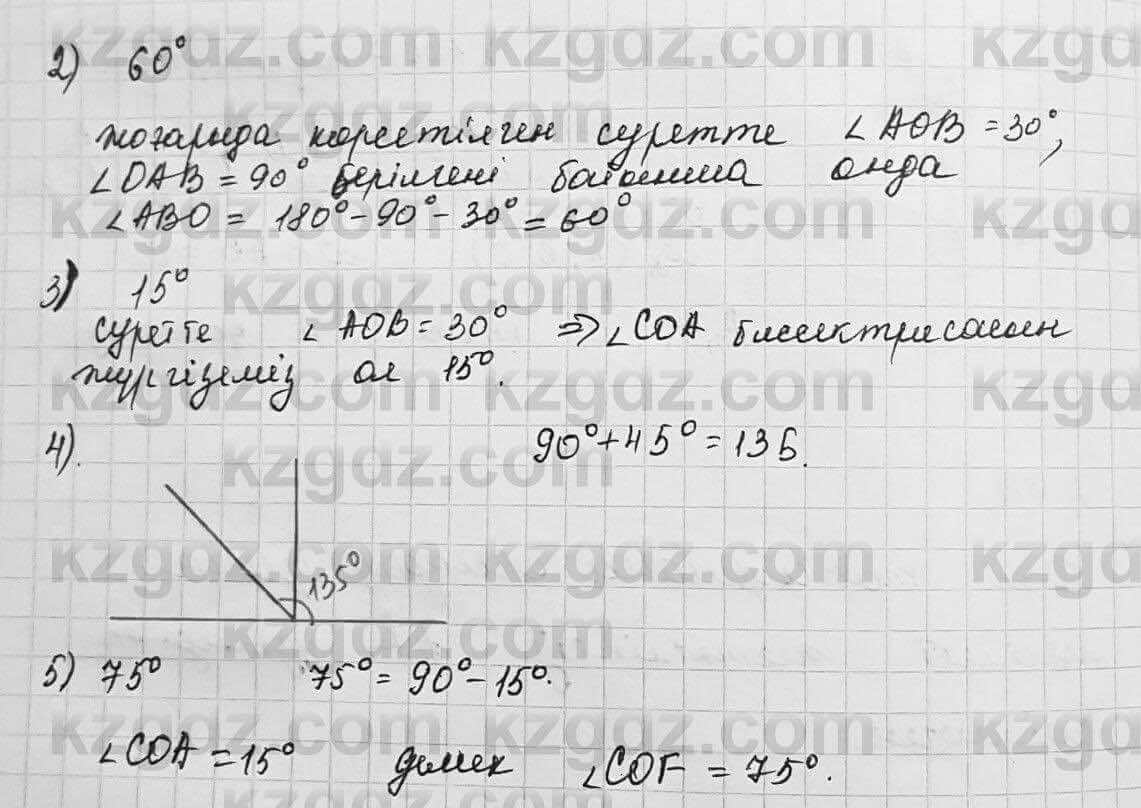 2) 60°
жоғарыда көрсетілген суретте ∠AOB = 30°,
∠OAB = 90° берілгені бойынша онда
∠ABO = 180° - 90° - 30° = 60°
3) 15°
суретте ∠AOB = 30° ⇒ ∠COA биссектрисасын
жүргіземіз ол 15°.
4). 90° + 45° = 135.
135°
5) 75° 75° = 90° - 15°.
∠COA = 15° демек ∠COF = 75°.
kzgdz.com